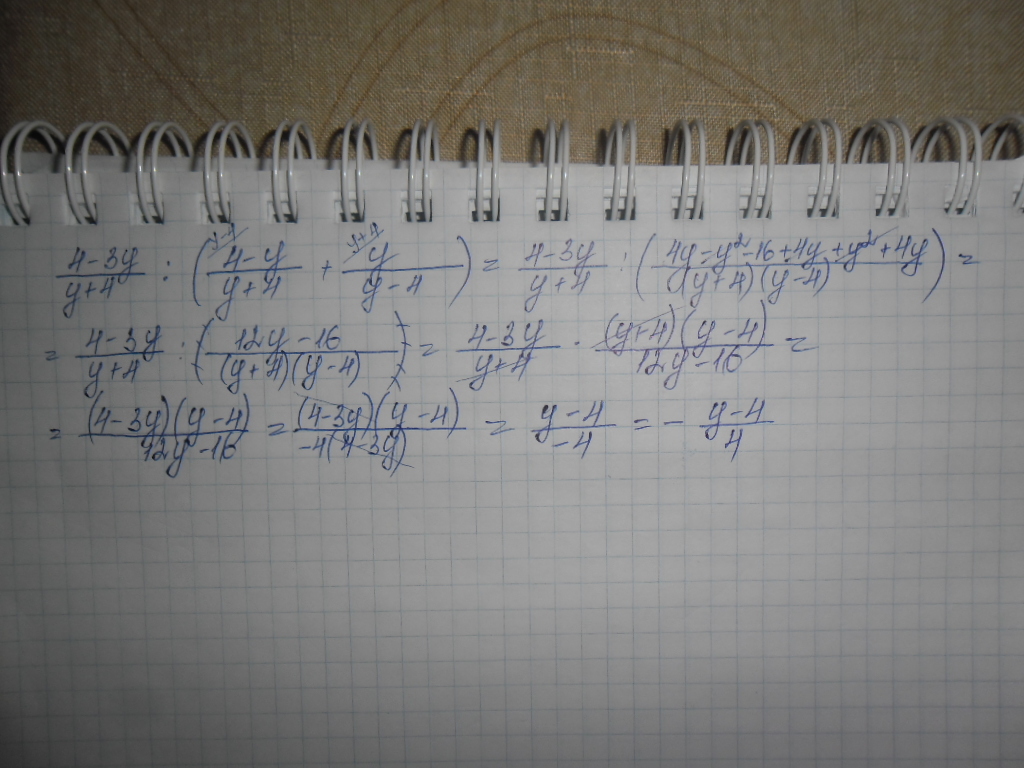 (4-3y)/(y+4) : ((4-y)/(y+4) + y/(y-4)) = (4-3y)/(y+4) : ((4y-y²-16+4y+y²+4y)/((y+4)(y-4))) =
= (4-3y)/(y+4) : ((12y-16)/((y+4)(y-4))) = (4-3y)/(y+4) · ((y+4)(y-4))/(12y-16) =
= ((4-3y)(y-4))/(12y-16) = ((4-3y)(y-4))/(-4(4-3y)) = (y-4)/(-4) = - (y-4)/4